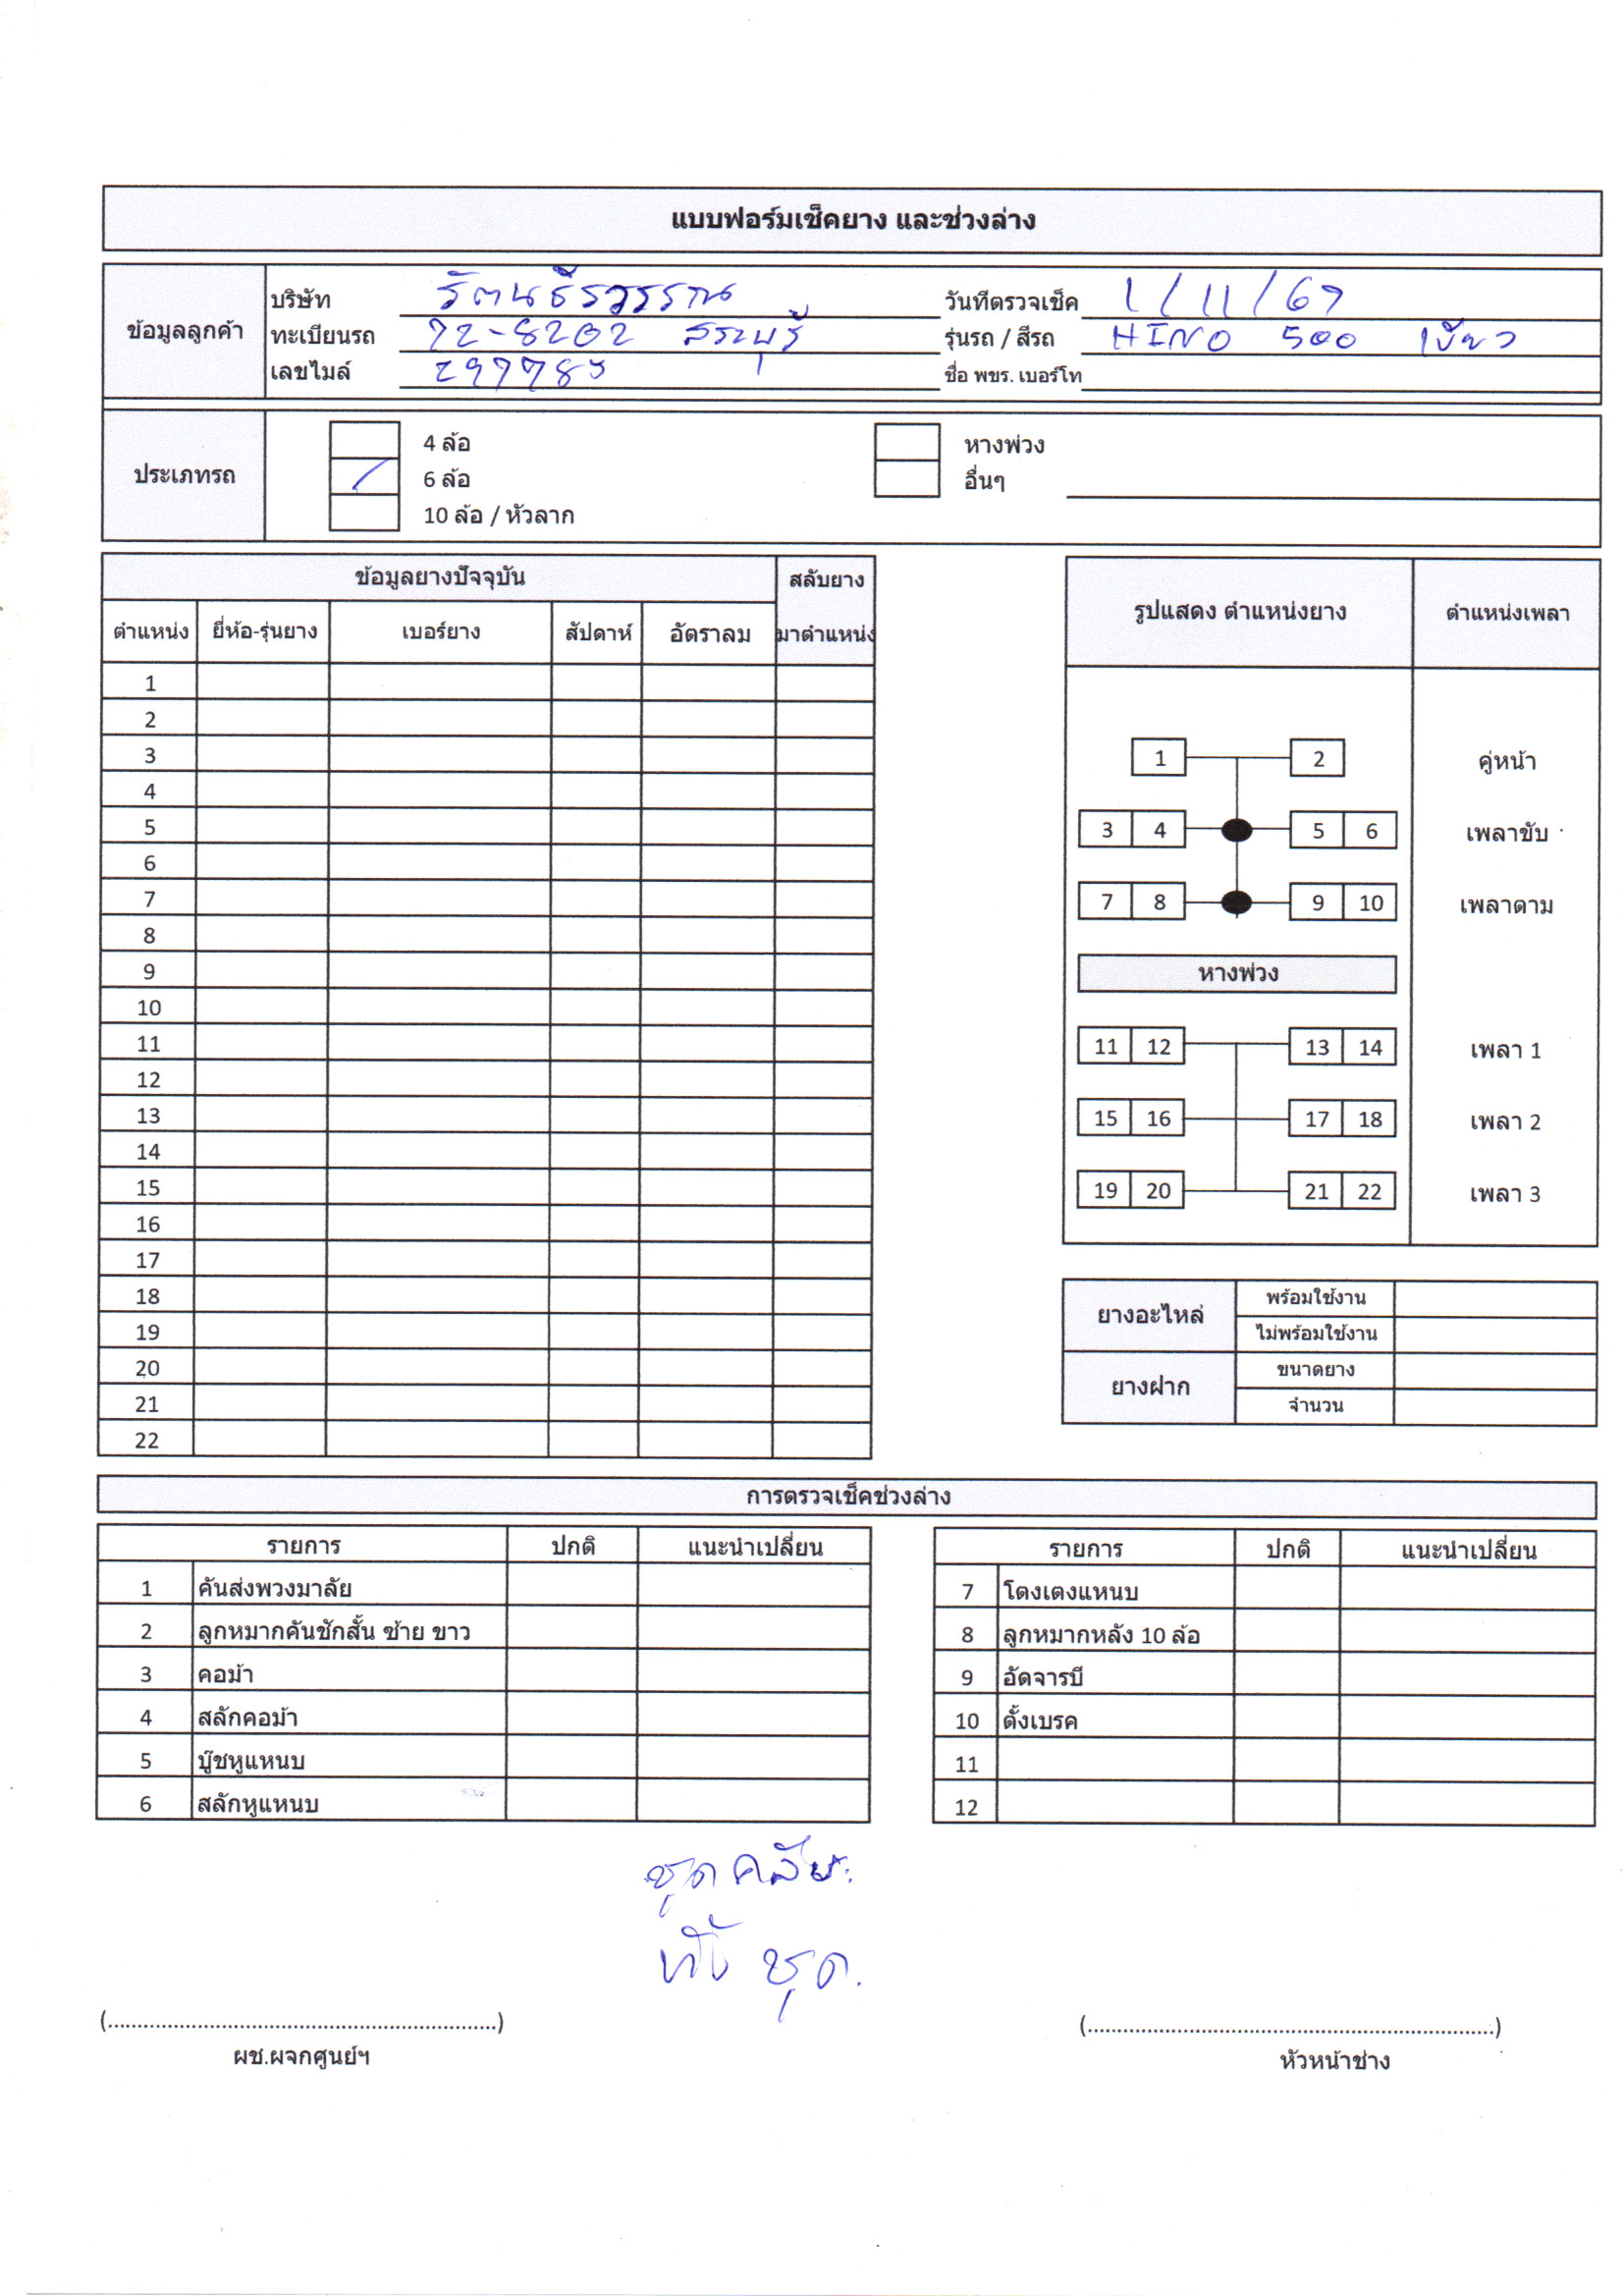 แบบฟอร์มเช็คยาง และช่วงล่าง
ข้อมูลลูกค้า
บริษัท รัตนธีรวรรณ วันที่ตรวจเช็ค 1/11/67
ทะเบียนรถ 72-8202 สระบุรี รุ่นรถ / สีรถ HINO 500 เขียว
เลขไมล์ ชื่อ พขร. เบอร์โท
ประเภทรถ
4 ล้อ หางพ่วง
/ 6 ล้อ อื่นๆ
10 ล้อ / หัวลาก
ข้อมูลยางปัจจุบัน สลับยาง
ตำแหน่ง ยี่ห้อ-รุ่นยาง เบอร์ยาง สัปดาห์ อัตราลม มาตำแหน่ง
1
2
3
4
5
6
7
8
9
10
11
12
13
14
15
16
17
18
19
20
21
22
รูปแสดง ตำแหน่งยาง ตำแหน่งเพลา
1 2 คู่หน้า
3 4 5 6 เพลาขับ
7 8 9 10 เพลาตาม
หางพ่วง
11 12 13 14 เพลา 1
15 16 17 18 เพลา 2
19 20 21 22 เพลา 3
ยางอะไหล่ พร้อมใช้งาน
ไม่พร้อมใช้งาน
ยางฝาก ขนาดยาง
จำนวน
การตรวจเช็คช่วงล่าง
รายการ ปกติ แนะนำเปลี่ยน
1 คันส่งพวงมาลัย
2 ลูกหมากคันชักสั้น ซ้าย ขาว
3 คอม้า
4 สลักคอม้า
5 บู๊ชหูแหนบ
6 สลักหูแหนบ
รายการ ปกติ แนะนำเปลี่ยน
7 โตงเตงแหนบ
8 ลูกหมากหลัง 10 ล้อ
9 อัดจารบี
10 ตั้งเบรค
11
12
ชุดคลัช
ทั้งชุด.
(................................................................)
ผช.ผจกศูนย์ฯ
(................................................................)
หัวหน้าช่าง